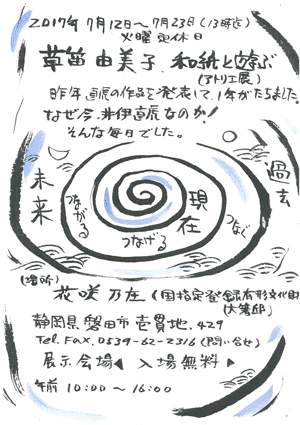 2017年7月12日〜7月23日(13時迄)
火曜定休日
草笛由美子 和紙と遊ぶ
(アトリエ展)
昨年直虎の作品を発表して、1年がたちました。
なぜ今、井伊直虎なのか!
そんな毎日でした。
過去
つなぐ
現在
つなげる
つながる
未来
(場所)
花咲乃庄(国指定登録有形文化財
(大箸邸)
静岡県磐田市壱貫地.429
Tel.Fax.0539-62-2316(問い合せ)
展示会場◀入場無料▶
午前10:00〜16:00